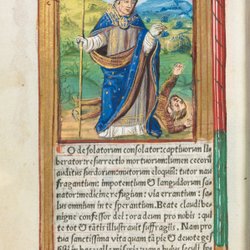 O desolatorum consolator: captiuorum li
berator: resurrectio mortuorum: lumen cecorū
auditus surdorum: mutorum eloquiū: tutor nau
fragantium: impotentium & languidorum sa
nator: medicine refugium: via errantium: sal
us omnium in te sperantium. Beate claudi be
nigne confessor dei: ora deum pro nobis: q̄
te tot & tātis illustrauit suffragiis. Nam pro
tua sanctissima vita quam ī apie & deuote ges